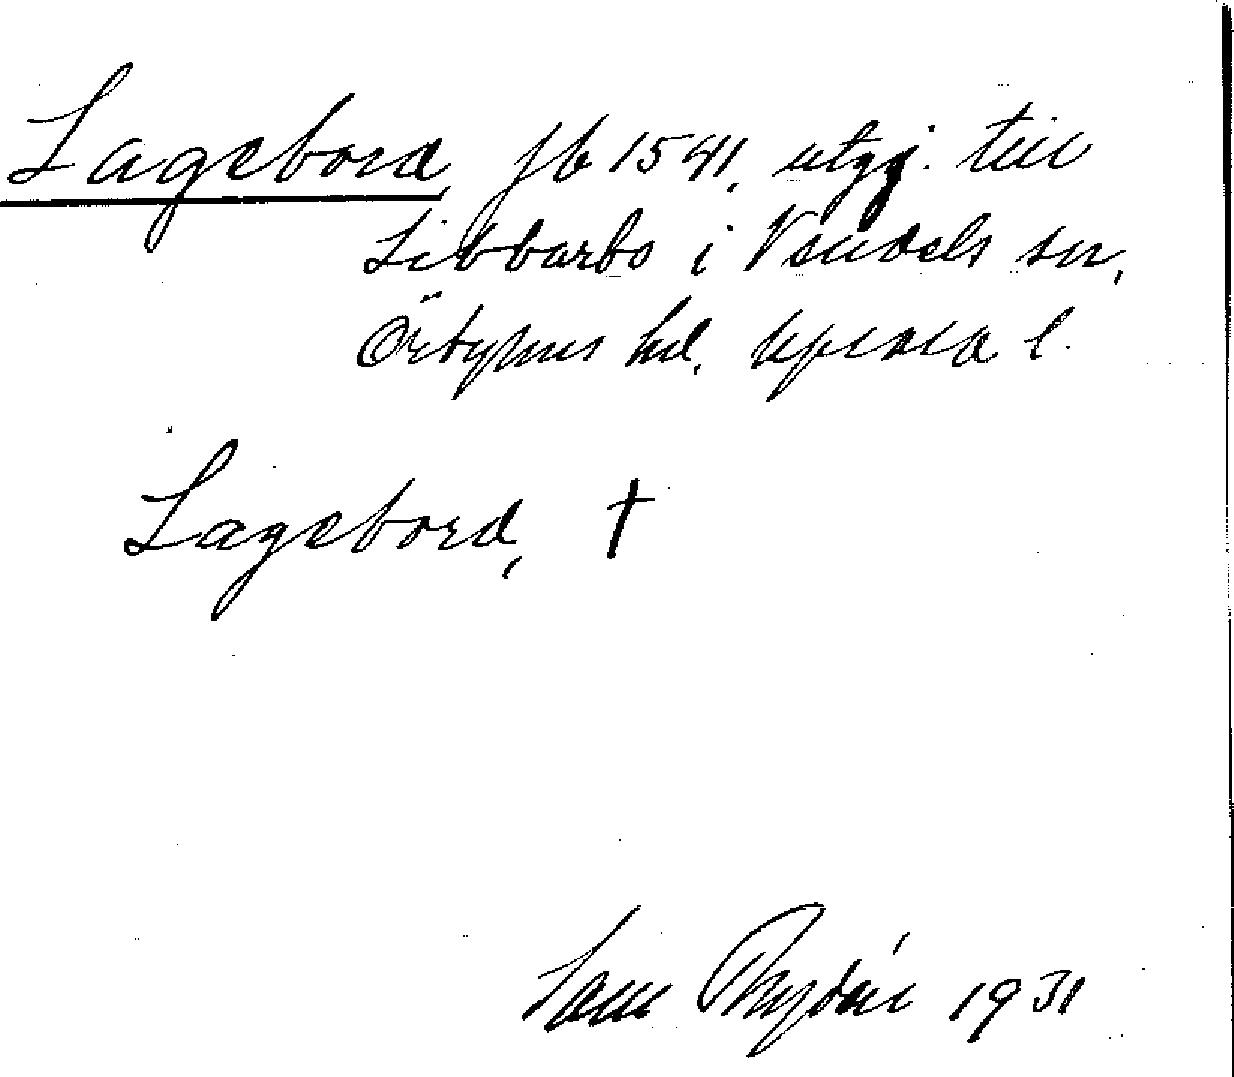 Lagebord, jb 1541, utgj. till
Libbarbo i Vendels sn,
Örbyhus hd, Upsala l.
Lagebord, †
Sam Rydén 1931